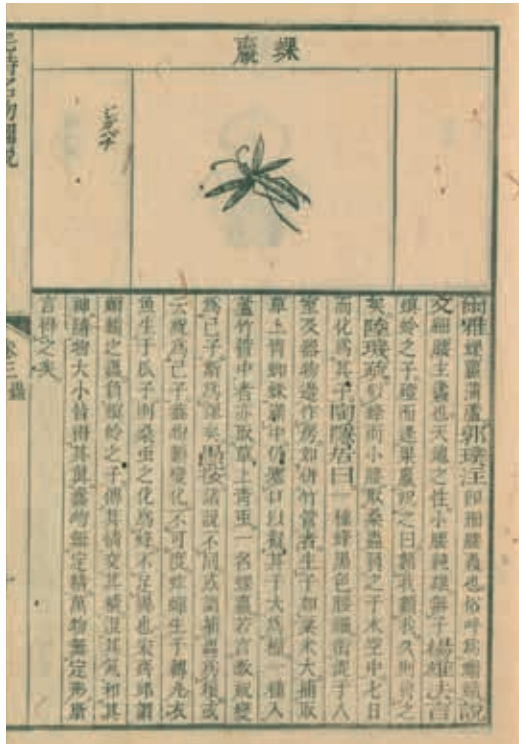 蜾蠃
爾雅蜾蠃蒲盧郭璞注即細腰蠭也俗呼爲蠮螉說
文細腰土蠭也天地之性小腰純雄無子楊雄法言
螟蛉之子殪而逢果蠃祝之曰類我類我久則肖之
矣陸璣疏似蜂而小腰取桑蟲負之于木空中七日
而化爲其子陶隱居曰一種蜂黑色腰細銜泥于人
室及器物邊作房如併竹管者生子如粟米大捕取
草上青蜘蛛滿中仍塞口以擬其子大爲糧一種入
蘆竹管中者亦取草上青虫一名蜾蠃若言教祝變
爲己子斯爲謬矣愚按諸說不同或謂捕蟲爲糧或
云祝爲己子蓋物類變化不可度蚱蟬生于轉丸衣
魚生于瓜子則桑虫之化爲蜂不足怪也宋齊邱謂
蜾蠃之蟲負螟蛉之子傳其情交其精混其氣和其
神隨物大小皆得其眞蠢動無定情萬物無定形斯
言得之矣
詩名物圖說
卷三 蟲